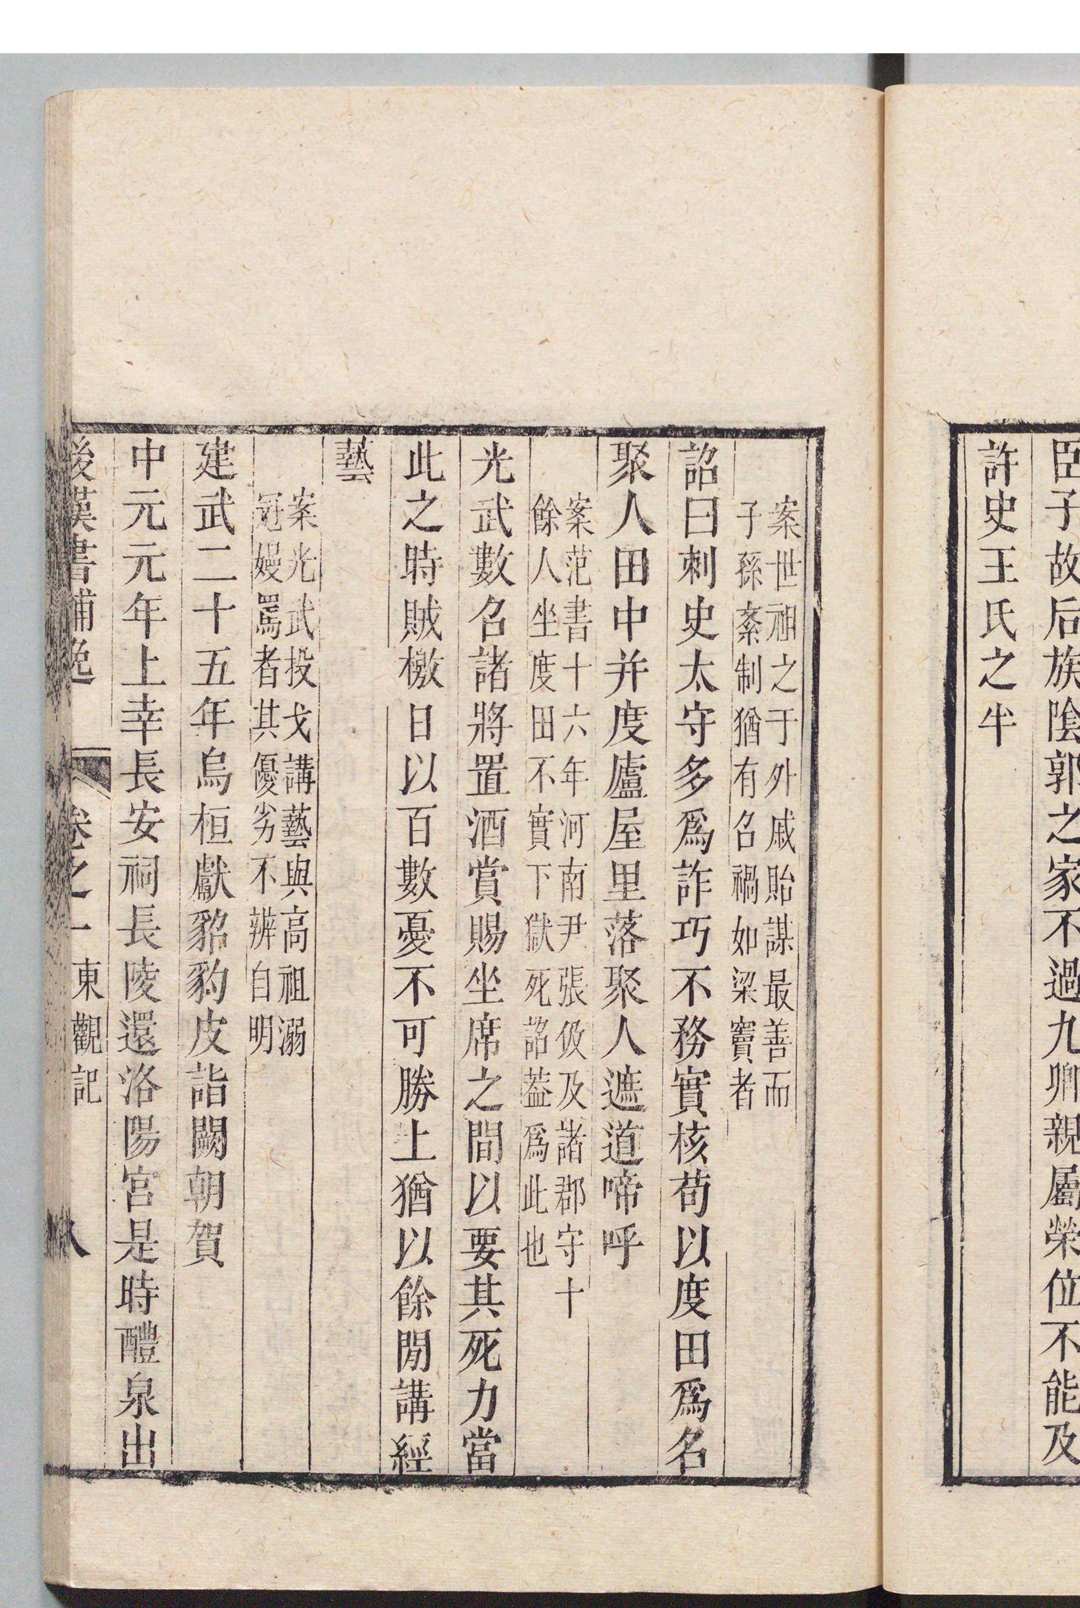 臣子故后族陰郭之家不過九卿親屬榮位不能及
許史王氏之半
案世祖之于外戚貽謀最善而
子孫紊制猶有名禍如梁竇者
詔曰刺史太守多爲詐巧不務實核苟以度田爲名
聚人田中并度廬屋里落聚人遮道啼呼
案范書十六年河南尹張伋及諸郡守十
餘人坐度田不實下獄死詔葢爲此也
光武數名諸將置酒賞賜坐席之間以要其死力當
此之時賊檄日以百數憂不可勝上猶以餘閒講經
藝
案光武投戈講藝與高祖溺
冠嫚罵者其優劣不辨自明
建武二十五年烏桓獻貂豹皮詣闕朝賀
中元元年上幸長安祠長陵還洛陽宮是時醴泉出
後漢書補逸 卷之一 東觀記 八